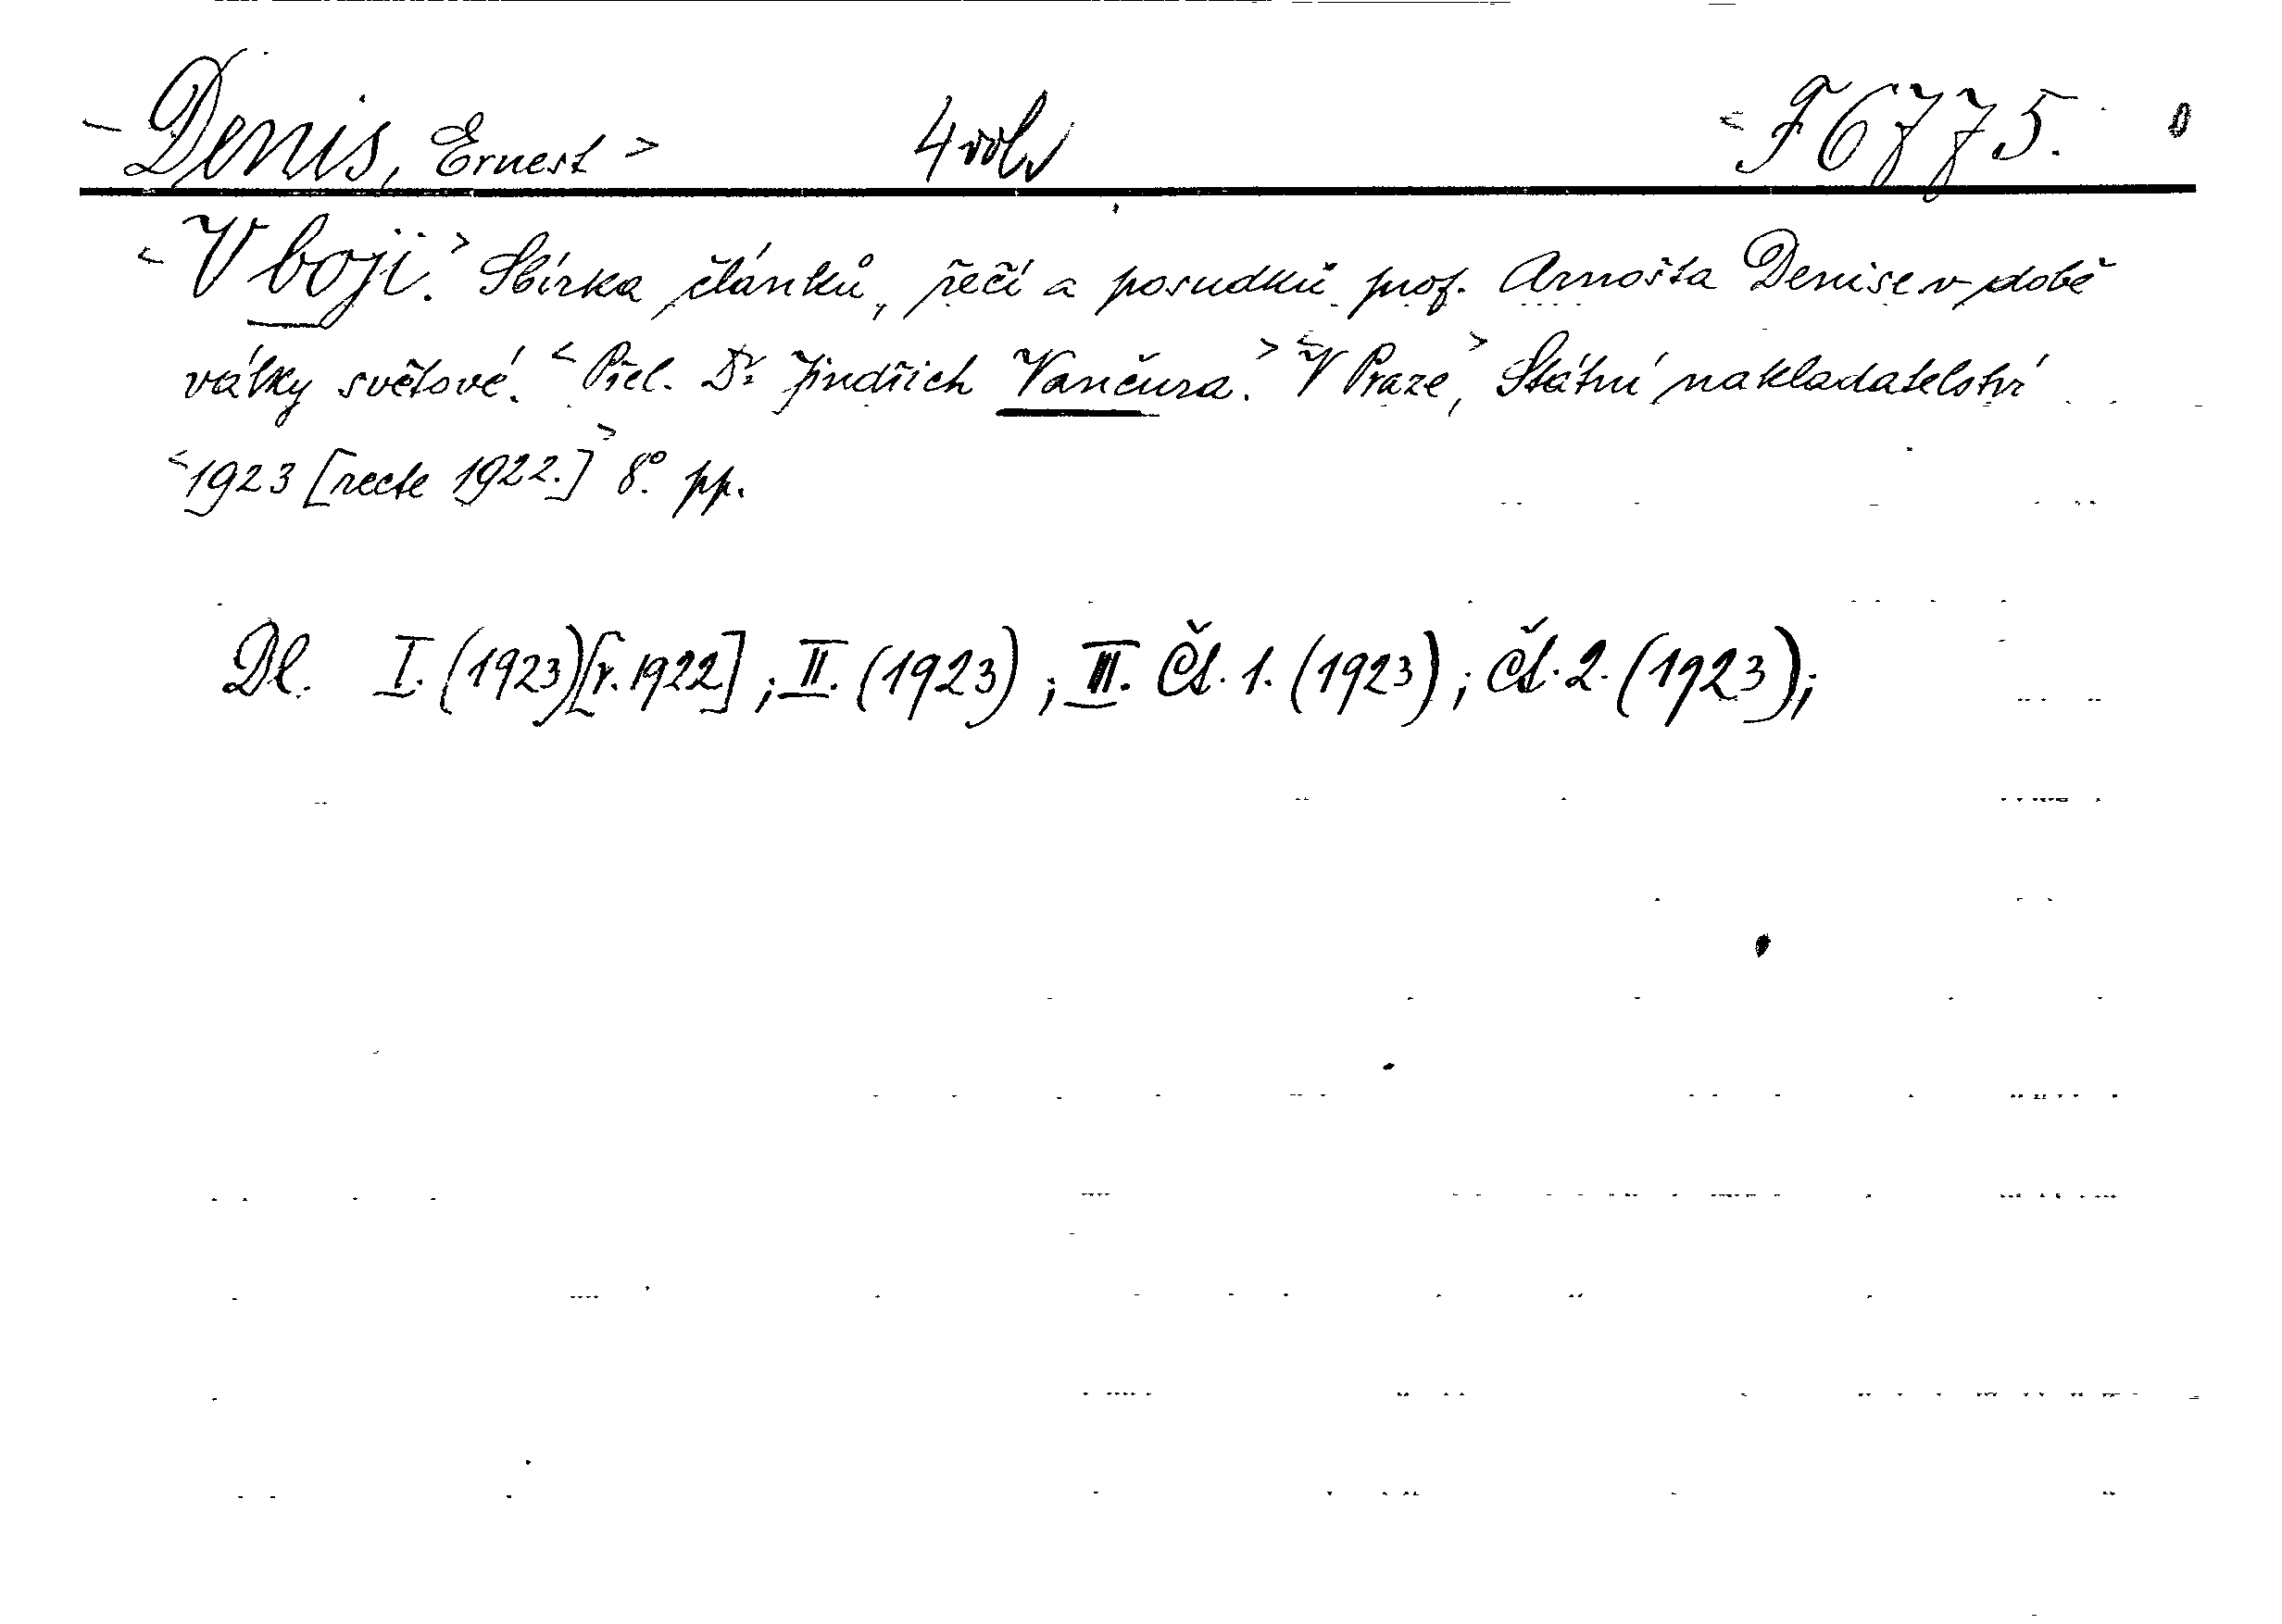 Denis, Ernest > 4 vol. < F 6775.
< V boji. > Sbírka článků, řečí a posudků prof. Arnošta Denise v době
války světové. < Přel. Dr. Jindřich Vančura. > < V Praze, > Státní nakladatelství
< 1923 [recte 1922.] > 8º. pp.
Dl. I. (1923)[r. 1922] ; II. (1923) ; III. Čt. 1. (1923) ; Čt. 2. (1923);